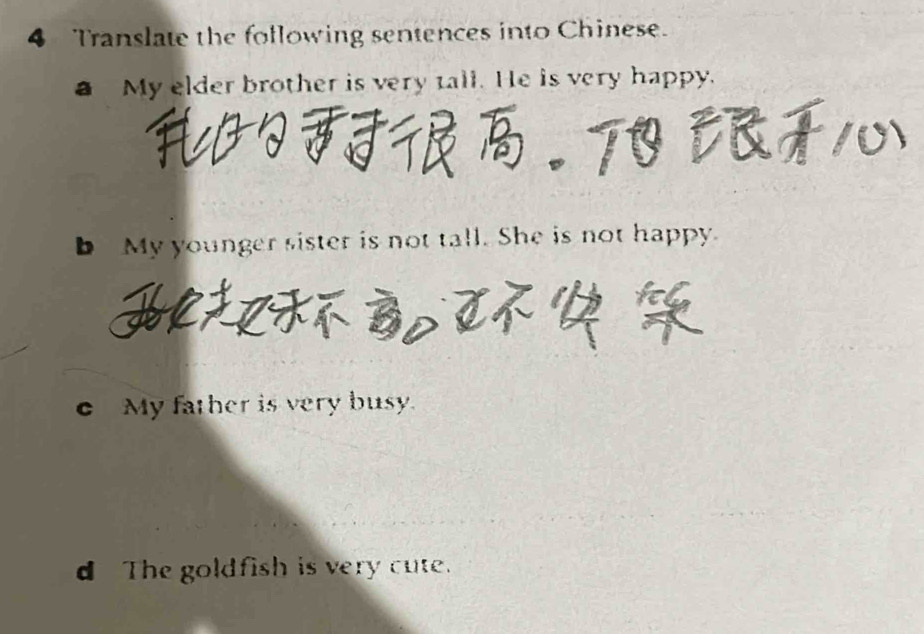 4 Translate the following sentences into Chinese.
a My elder brother is very tall. He is very happy.
我的哥哥很高。他很开心
b My younger sister is not tall. She is not happy.
我妹妹不高。不快乐
c My father is very busy.
d The goldfish is very cute.